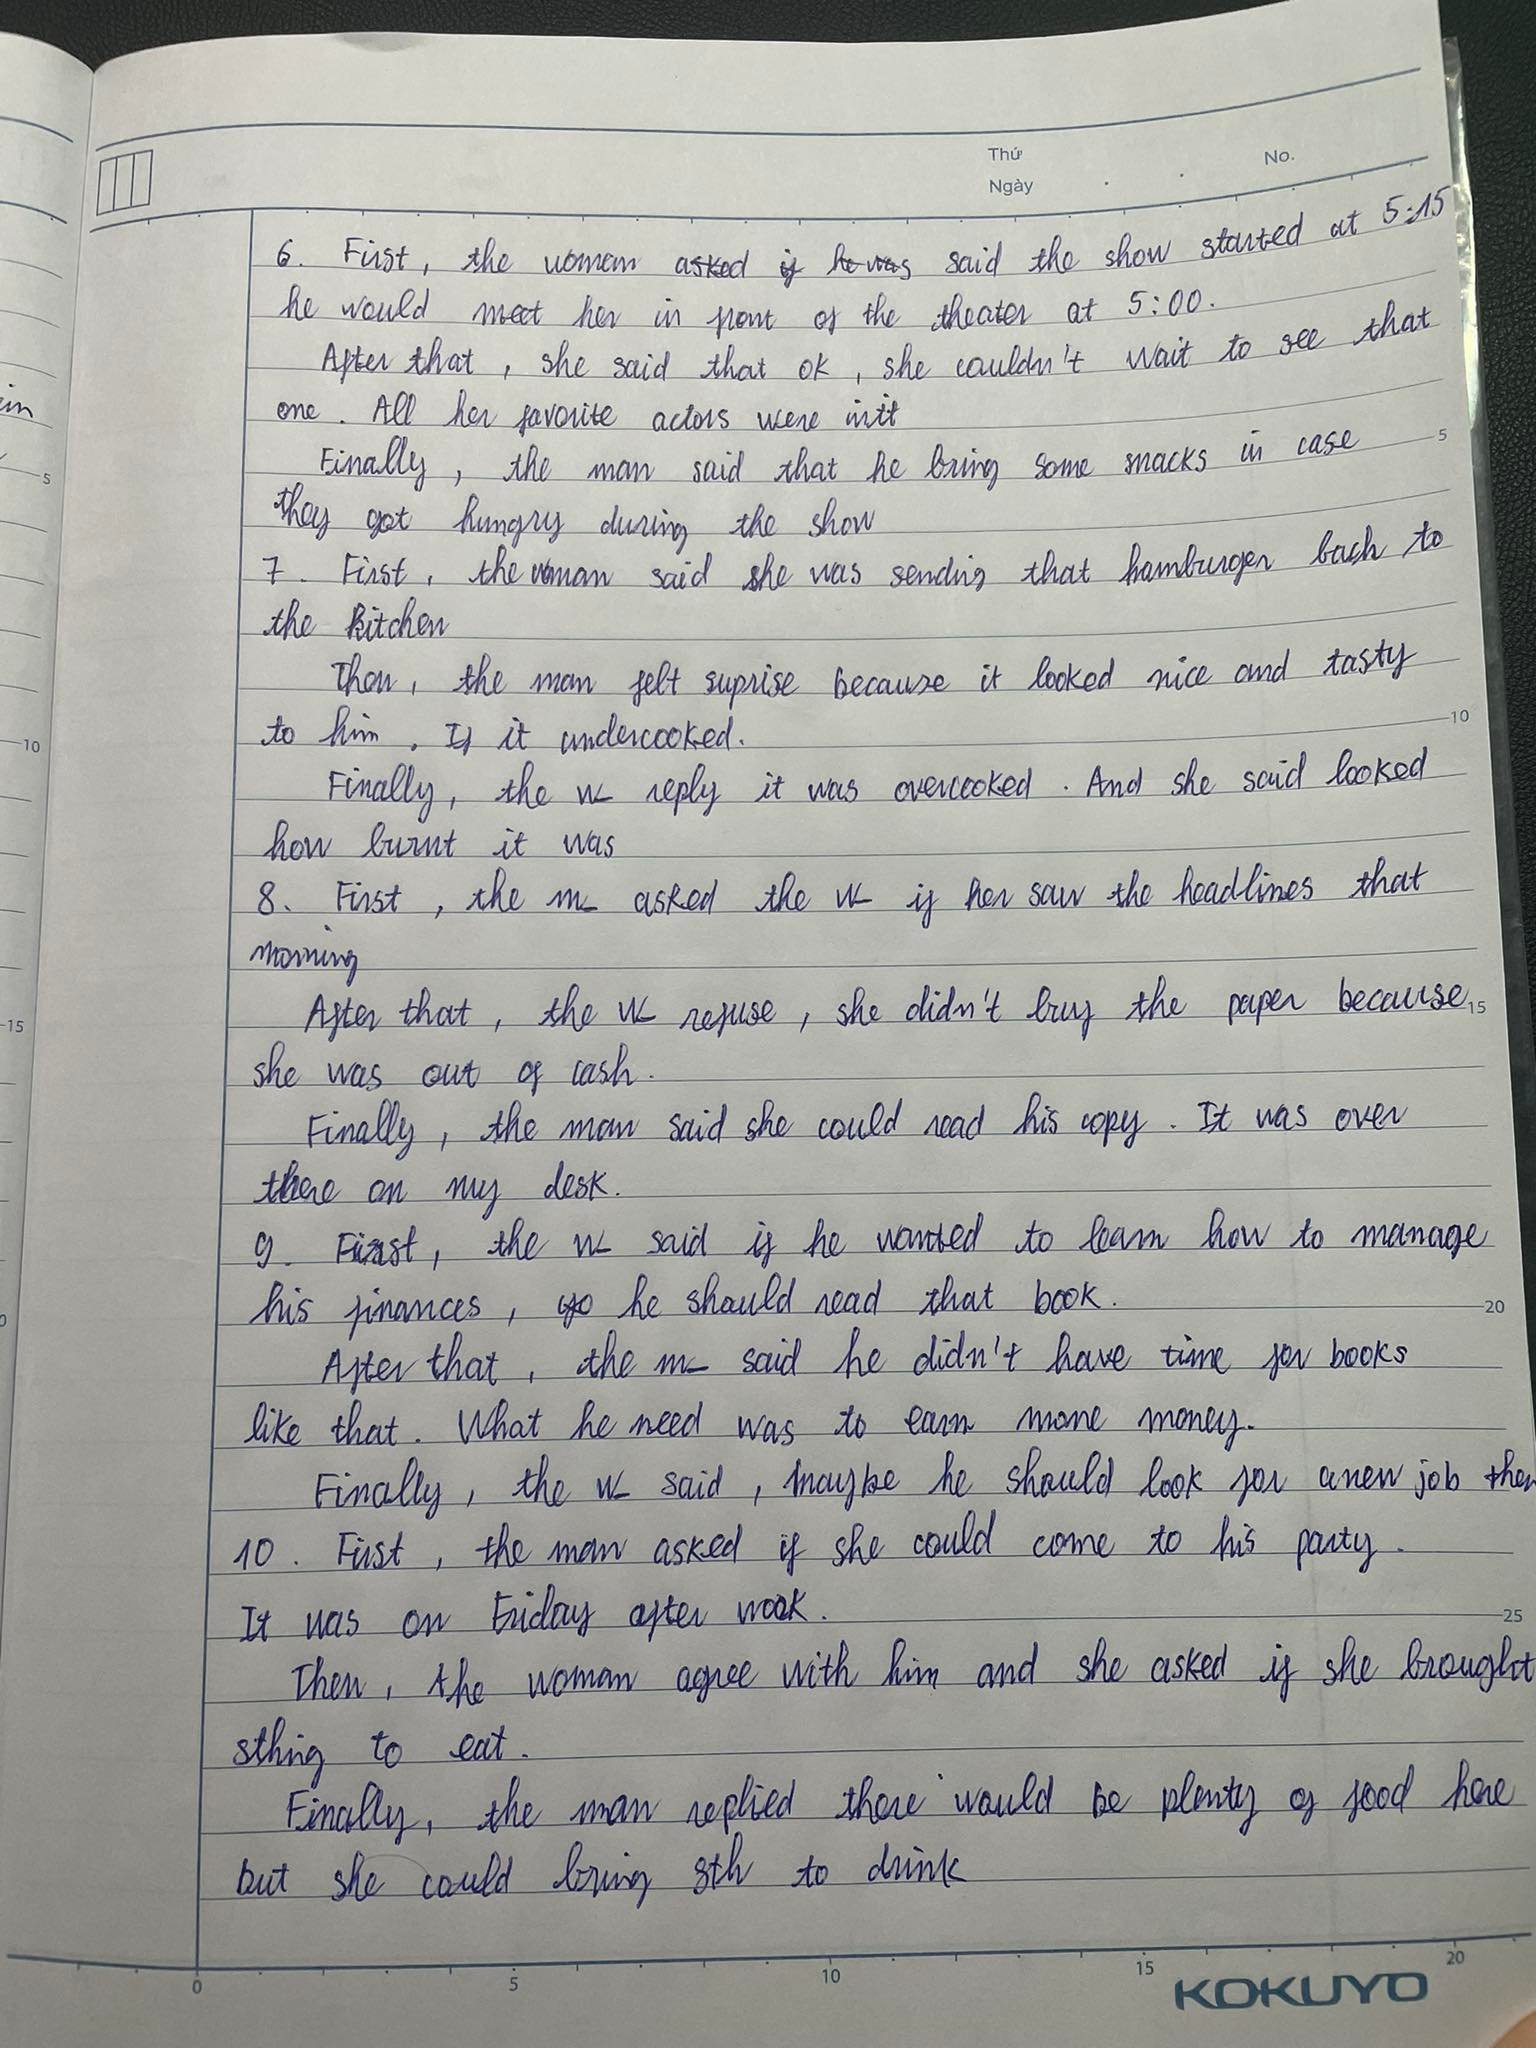 Thứ
Ngày
No.
6. First, the woman asked if he was said the show started at 5:15
he would meet her in front of the theater at 5:00.
After that, she said that ok, she couldn't wait to see that
one. All her favorite actors were in it
Finally, the man said that he bring some snacks in case
they got hungry during the show
7. First, the woman said she was sending that hamburger back to
the kitchen
Then, the man felt suprise because it looked nice and tasty
to him. If it undercooked.
Finally, the w reply it was overcooked. And she said looked
how burnt it was
8. First, the m asked the w if her saw the headlines that
morning
After that, the w refuse, she didn't buy the paper because
she was out of cash.
Finally, the man said she could read his copy. It was over
there on my desk.
9. First, the w said if he wanted to learn how to manage
his finances, he should read that book.
After that, the m said he didn't have time for books
like that. What he need was to earn more money.
Finally, the w said, maybe he should look for a new job then
10. First, the man asked if she could come to his party.
It was on Friday after work.
Then, the woman agree with him and she asked if she brought
sthing to eat.
Finally, the man replied there would be plenty of food here
but she could bring sth to drink
5
10
15
20
25
0 5 10 15 20
KOKUYO